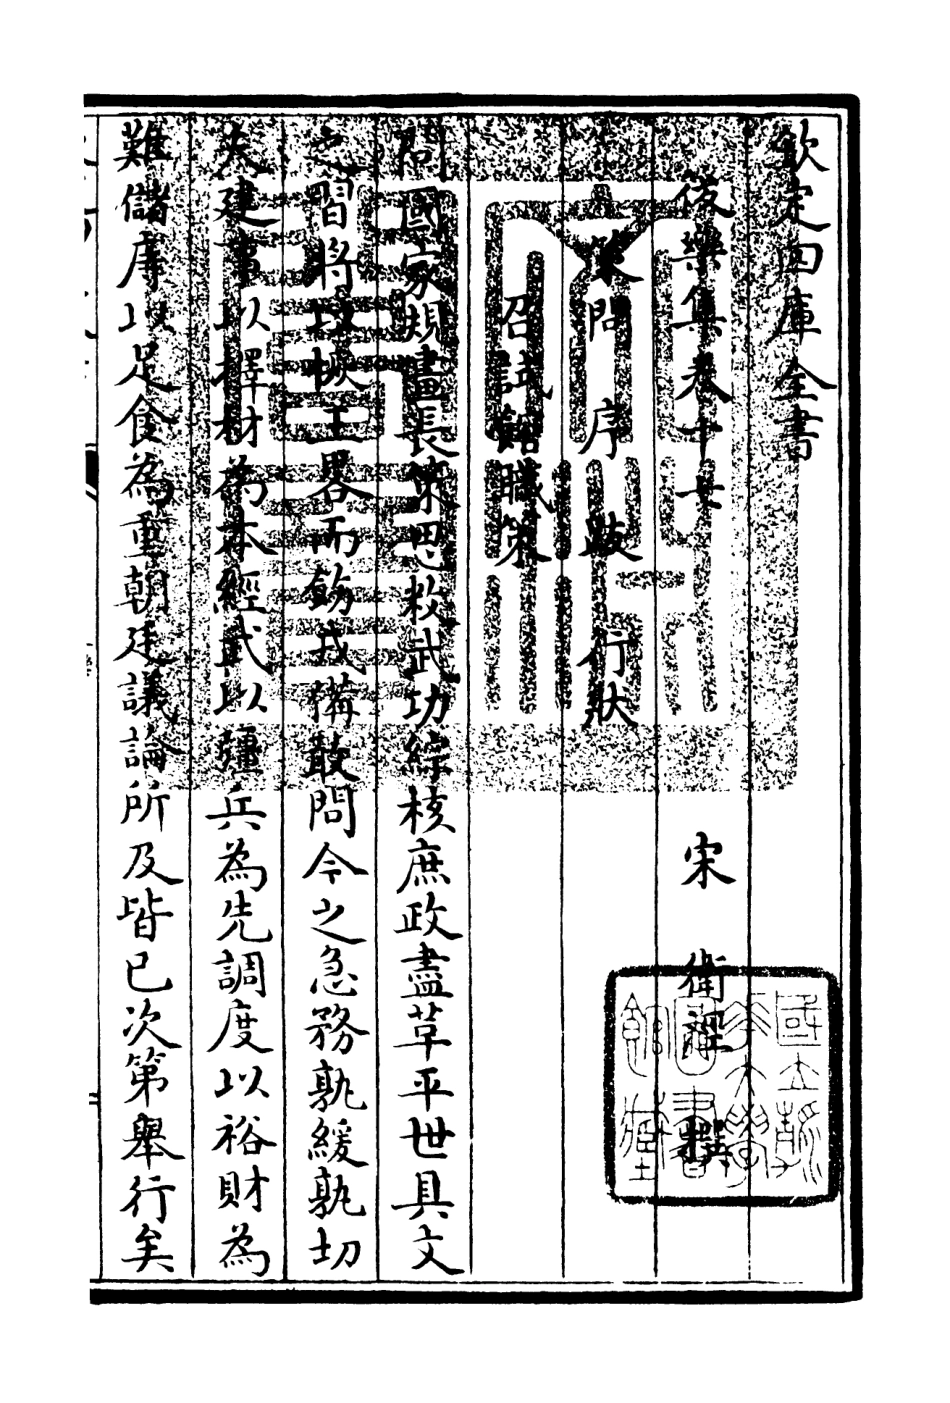 欽定四庫全書
後樂集卷十七
宋 衛涇 撰
策問 序 跋 行狀
召試館職策
問國家規畫長策思救武功綜核庶政盡革平世具文
之習將以恢王畧而飭戎備敢問今之急務孰緩孰切
夫建事以擇材為本經武以彊兵為先調度以裕財為
難儲庤以足食為重朝廷議論所及皆已次第舉行矣
國立浙江大學圖書館藏